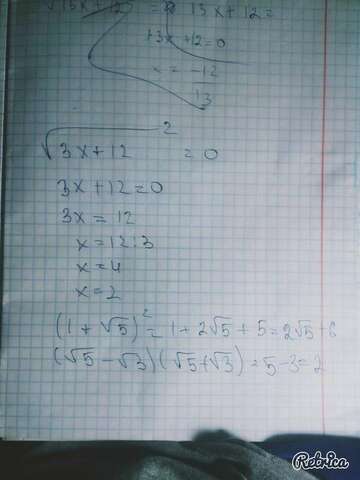 √13x+12 = 13x+12=
13x+12=0
x = -12
13
√3x+12 ² = 0
3x+12=0
3x = 12
x = 12:3
x = 4
x = 2
(1 + √5)² = 1 + 2√5 + 5 = 2√5 + 6
(√5 - √3)(√5+√3) = 5-3=2
Retrica